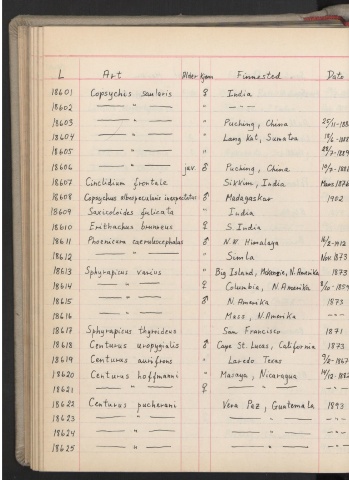 L Art Alder Kjønn Finnested Dato
18601 Copsychus saularis ♀ India
18602 — " — " — - —
18603 — " — " Puching, China
18604 — " — " Lang Kat, Sumatra
18605 — " — " —
18606 — " — juv. ♂ Puching, China
18607 Cinclidium frontale Sikkim, India Mars 1876
18608 Copsychus albospecularis inexpectatus ♂ Madagaskar 1902
18609 Saxicoloides fulicata " India
18610 Erithacus brunneus ♀ S. India
18611 Phoenicura caeruleocephalus ♂ N.W. Himalaya
18612 — " — " Simla Nov 1873
18613 Sphyrapicus varius " Big Island, N. Amerika 1873
18614 — " — ♀ Columbia, N. Amerika
18615 — " — ♂ N. Amerika 1873
18616 — " — Mass, N. Amerika - - -
18617 Sphyrapicus thyroideus San Francisco 1871
18618 Centurus uropygialis ♂ Cape St. Lucas, California 1873
18619 Centurus aurifrons Laredo Texas
18620 Centurus hoffmanni " Masaya, Nicaragua
18621 — " — ♀ — " — — " —
18622 Centurus pucherani Vera Paz, Guatemala 1893
18623 — " — — " — — " —
18624 — " — — " — — " —
18625 — " — — " — — " —